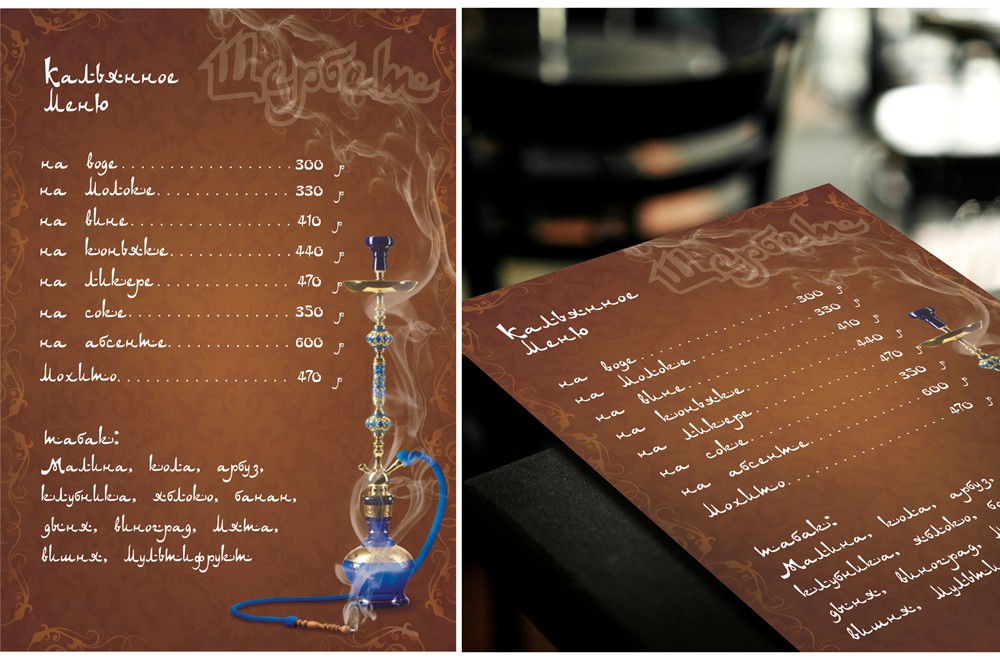 Турбате
Кальянное
Меню
на воде 300 р
на молоке 330 р
на вине 410 р
на коньяке 440 р
на ликере 470 р
на соке 350 р
на абсенте 600 р
Мохито 470 р
табак:
Малина, кола, арбуз,
клубника, яблоко, банан,
дыня, виноград, мята,
вишня, мультифрукт
Кальянное
Меню
на воде 300 р
на молоке 330 р
на вине 410 р
на коньяке 440 р
на ликере 470 р
на соке 350 р
на абсенте 600 р
Мохито 470 р
табак:
Малина, кола, арбуз,
клубника, яблоко,
дыня, виноград,
вишня,